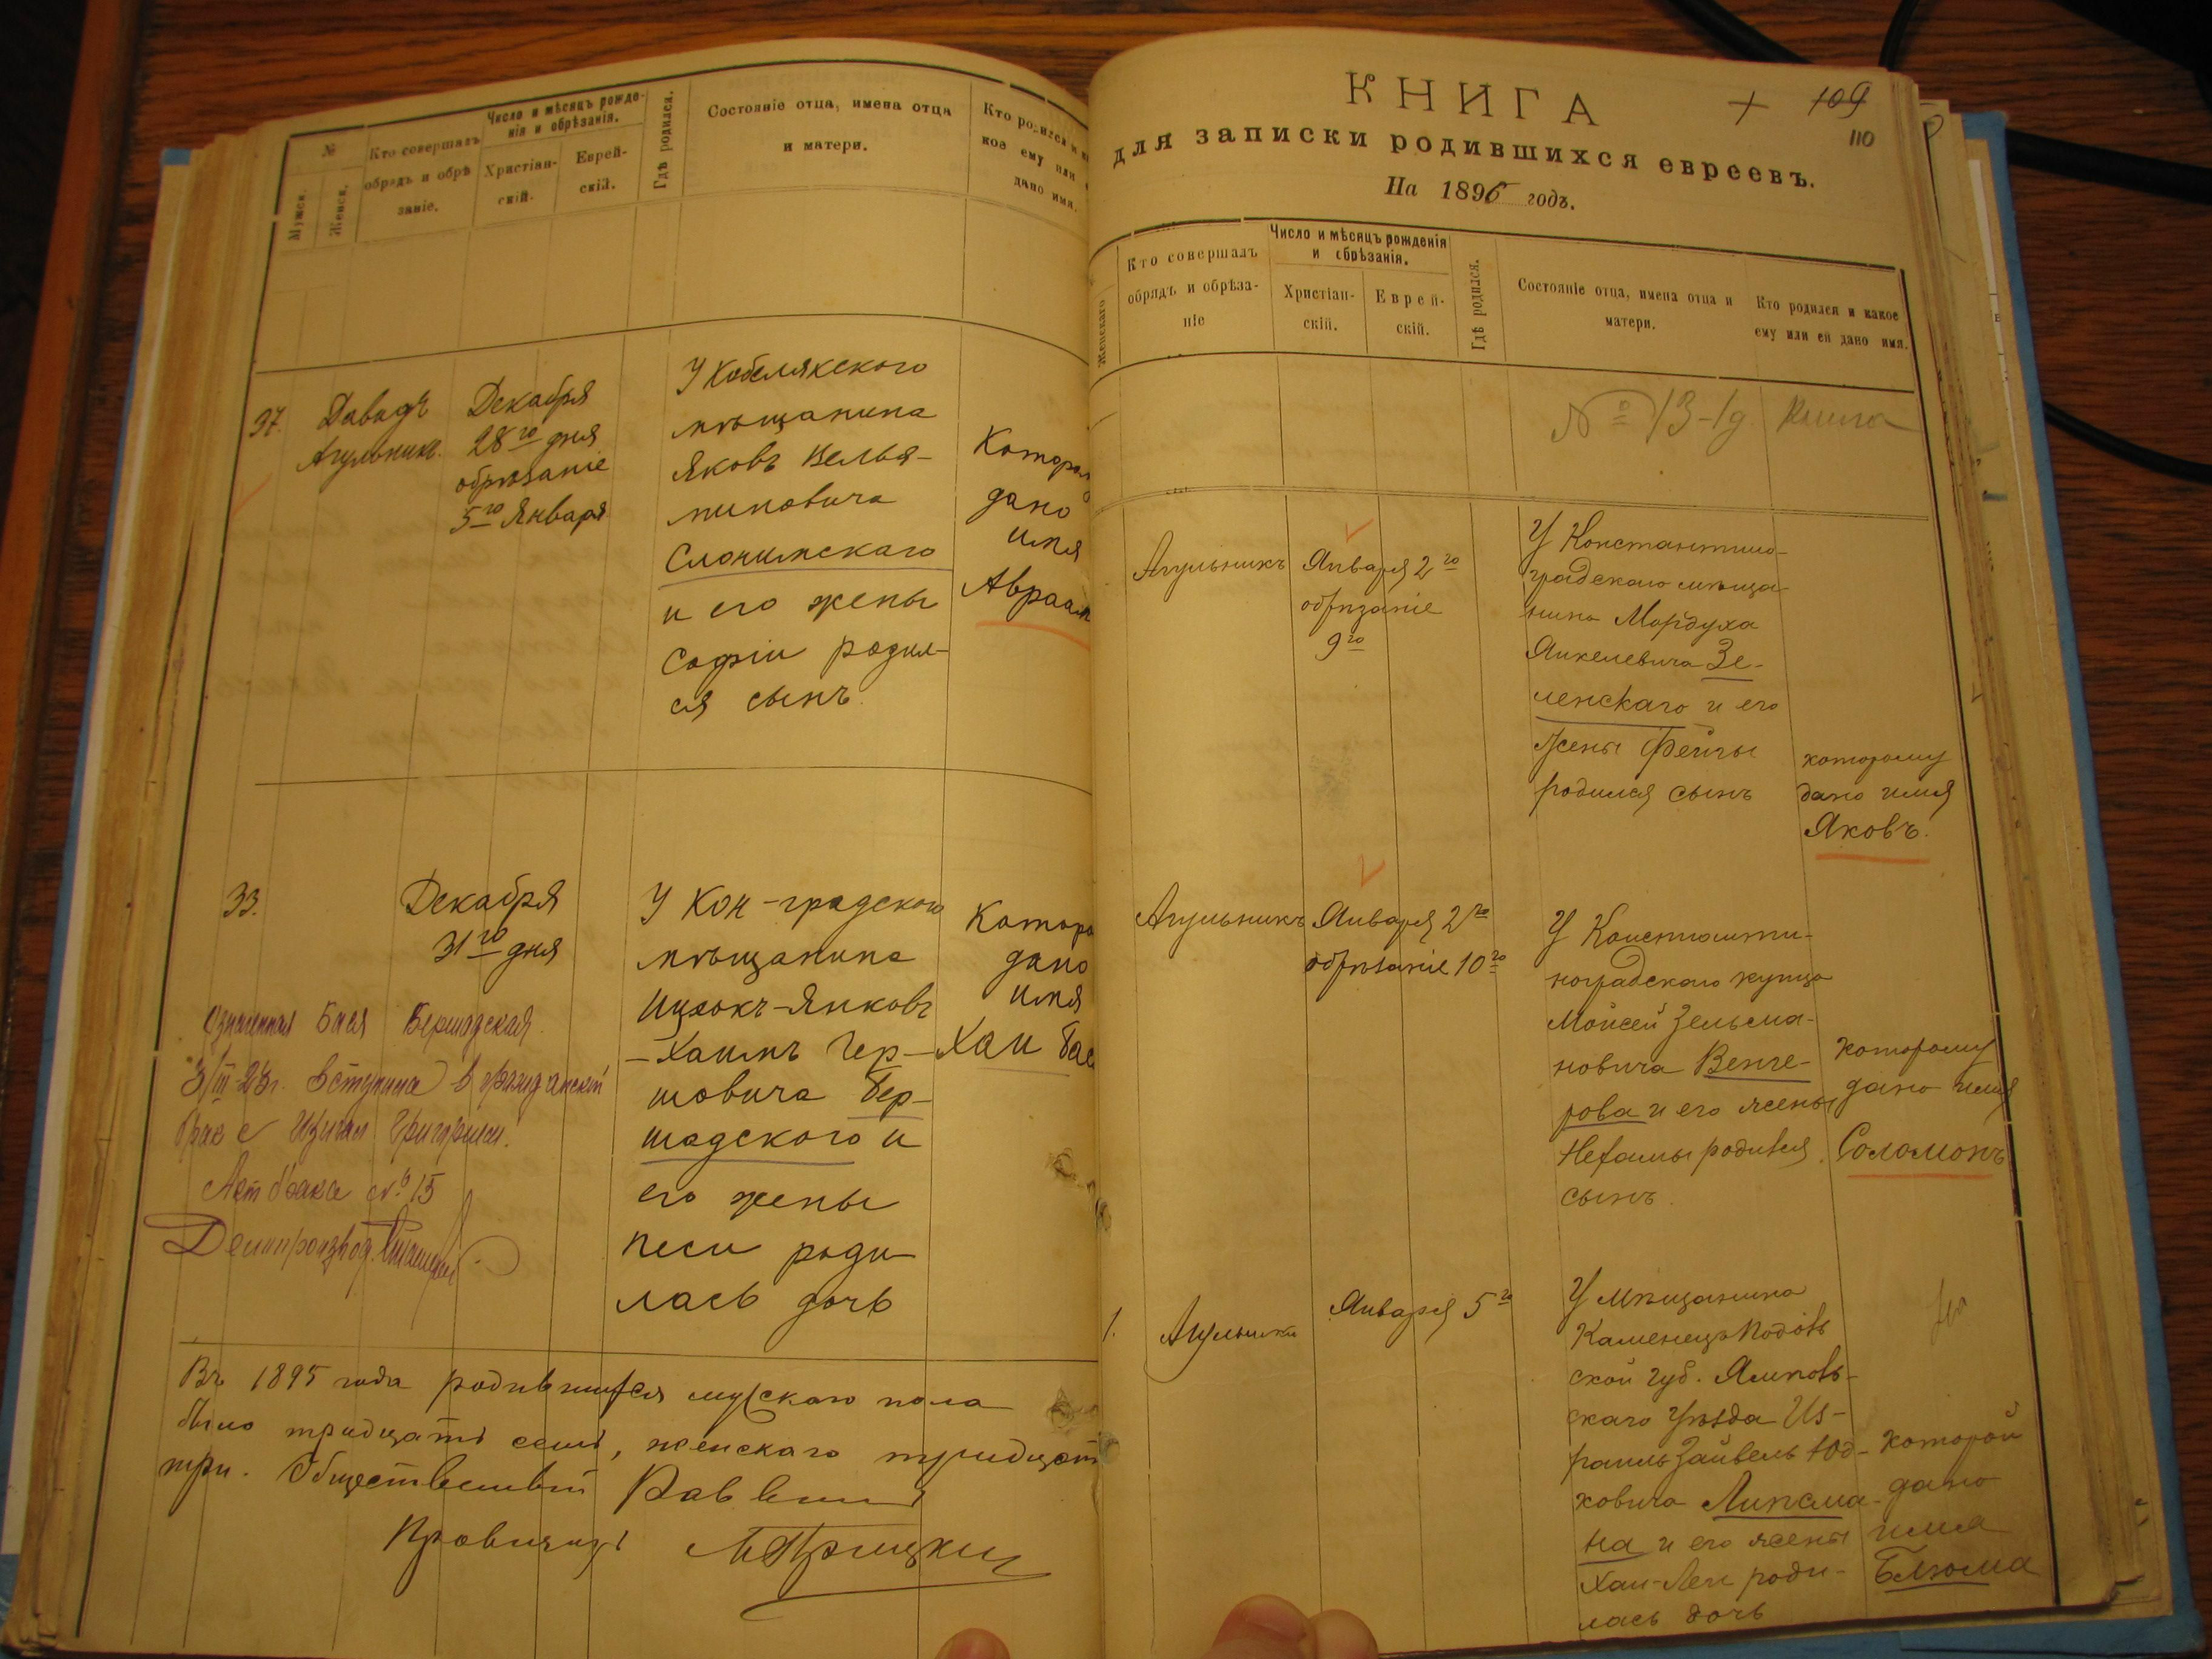 №
Мужск.
Женск.
Кто совершалъ
обрядъ и обрѣ
заніе.
Число и мѣсяцъ рожде-
нія и обрѣзанія.
Христіан-
скій.
Еврей-
скій.
Гдѣ родился.
Состояніе отца, имена отца
и матери.
Кто родился и ка
кое ему или
дано имя.
37.
Давидъ
Агульник.
Декабря
28го дня
обрѣзаніе
5го Января
У Кобелякского
мѣщанина
Яковъ Велья-
миновича
Слонимскаго
и его жены
Софіи родил-
ся сынъ.
Котором
дано
имя
Авраам
33.
Декабря
31го дня
У Кон-градского
мѣщанина
Ицхокъ-Янковъ
-Хаимъ Гер-
шовича Бер-
шадского и
его жены
Песи роди-
лась дочь
Котора
дано
имя
Хаи Бас
Означенная Бася Бершадская
3/III-23г. вступила в гражданский
брак с
Акт брака №15
Делопроизвод.
Въ 1895 года родившихся мужскаго пола
было тридцать семь, женскаго тридцат
три. Общественный Раввинъ
КНИГА
для записки родившихся евреевъ.
На 1896 годъ.
+ 109
110
Женскаго
Кто совершалъ
обрядъ и обрѣза-
ніе
Число и мѣсяцъ рожденія
и обрѣзанія.
Христіан-
скій.
Еврей-
скій.
Гдѣ родился.
Состояніе отца, имена отца и
матери.
Кто родился и какое
ему или ей дано имя.
№ 13-1д Книга
Агульникъ
Января 2го
обрѣзаніе
9го
У Константино-
градскаго мѣща-
нина Мордуха
Янкелевича Зе-
ленскаго и его
жены Фейги
родился сынъ
которому
дано имя
Яковъ.
Агульникъ
Января 2го
обрѣзаніе 10го
У Константи-
ноградскаго купца
Мойсей Зельма-
новича Венге-
рова и его жены
Нехамы родился
сынъ.
которому
дано имя
Соломонъ
1.
Агульникъ
Января 5го
У мѣщанина
Каменецъ Подоль
ской губ. Ямполь-
скаго уѣзда Из-
раиль Зайвель Юд-
ковича Липсма-
на и его жены
Хаи-Леи роди-
лась дочь
которой
дано
имя
Блюма